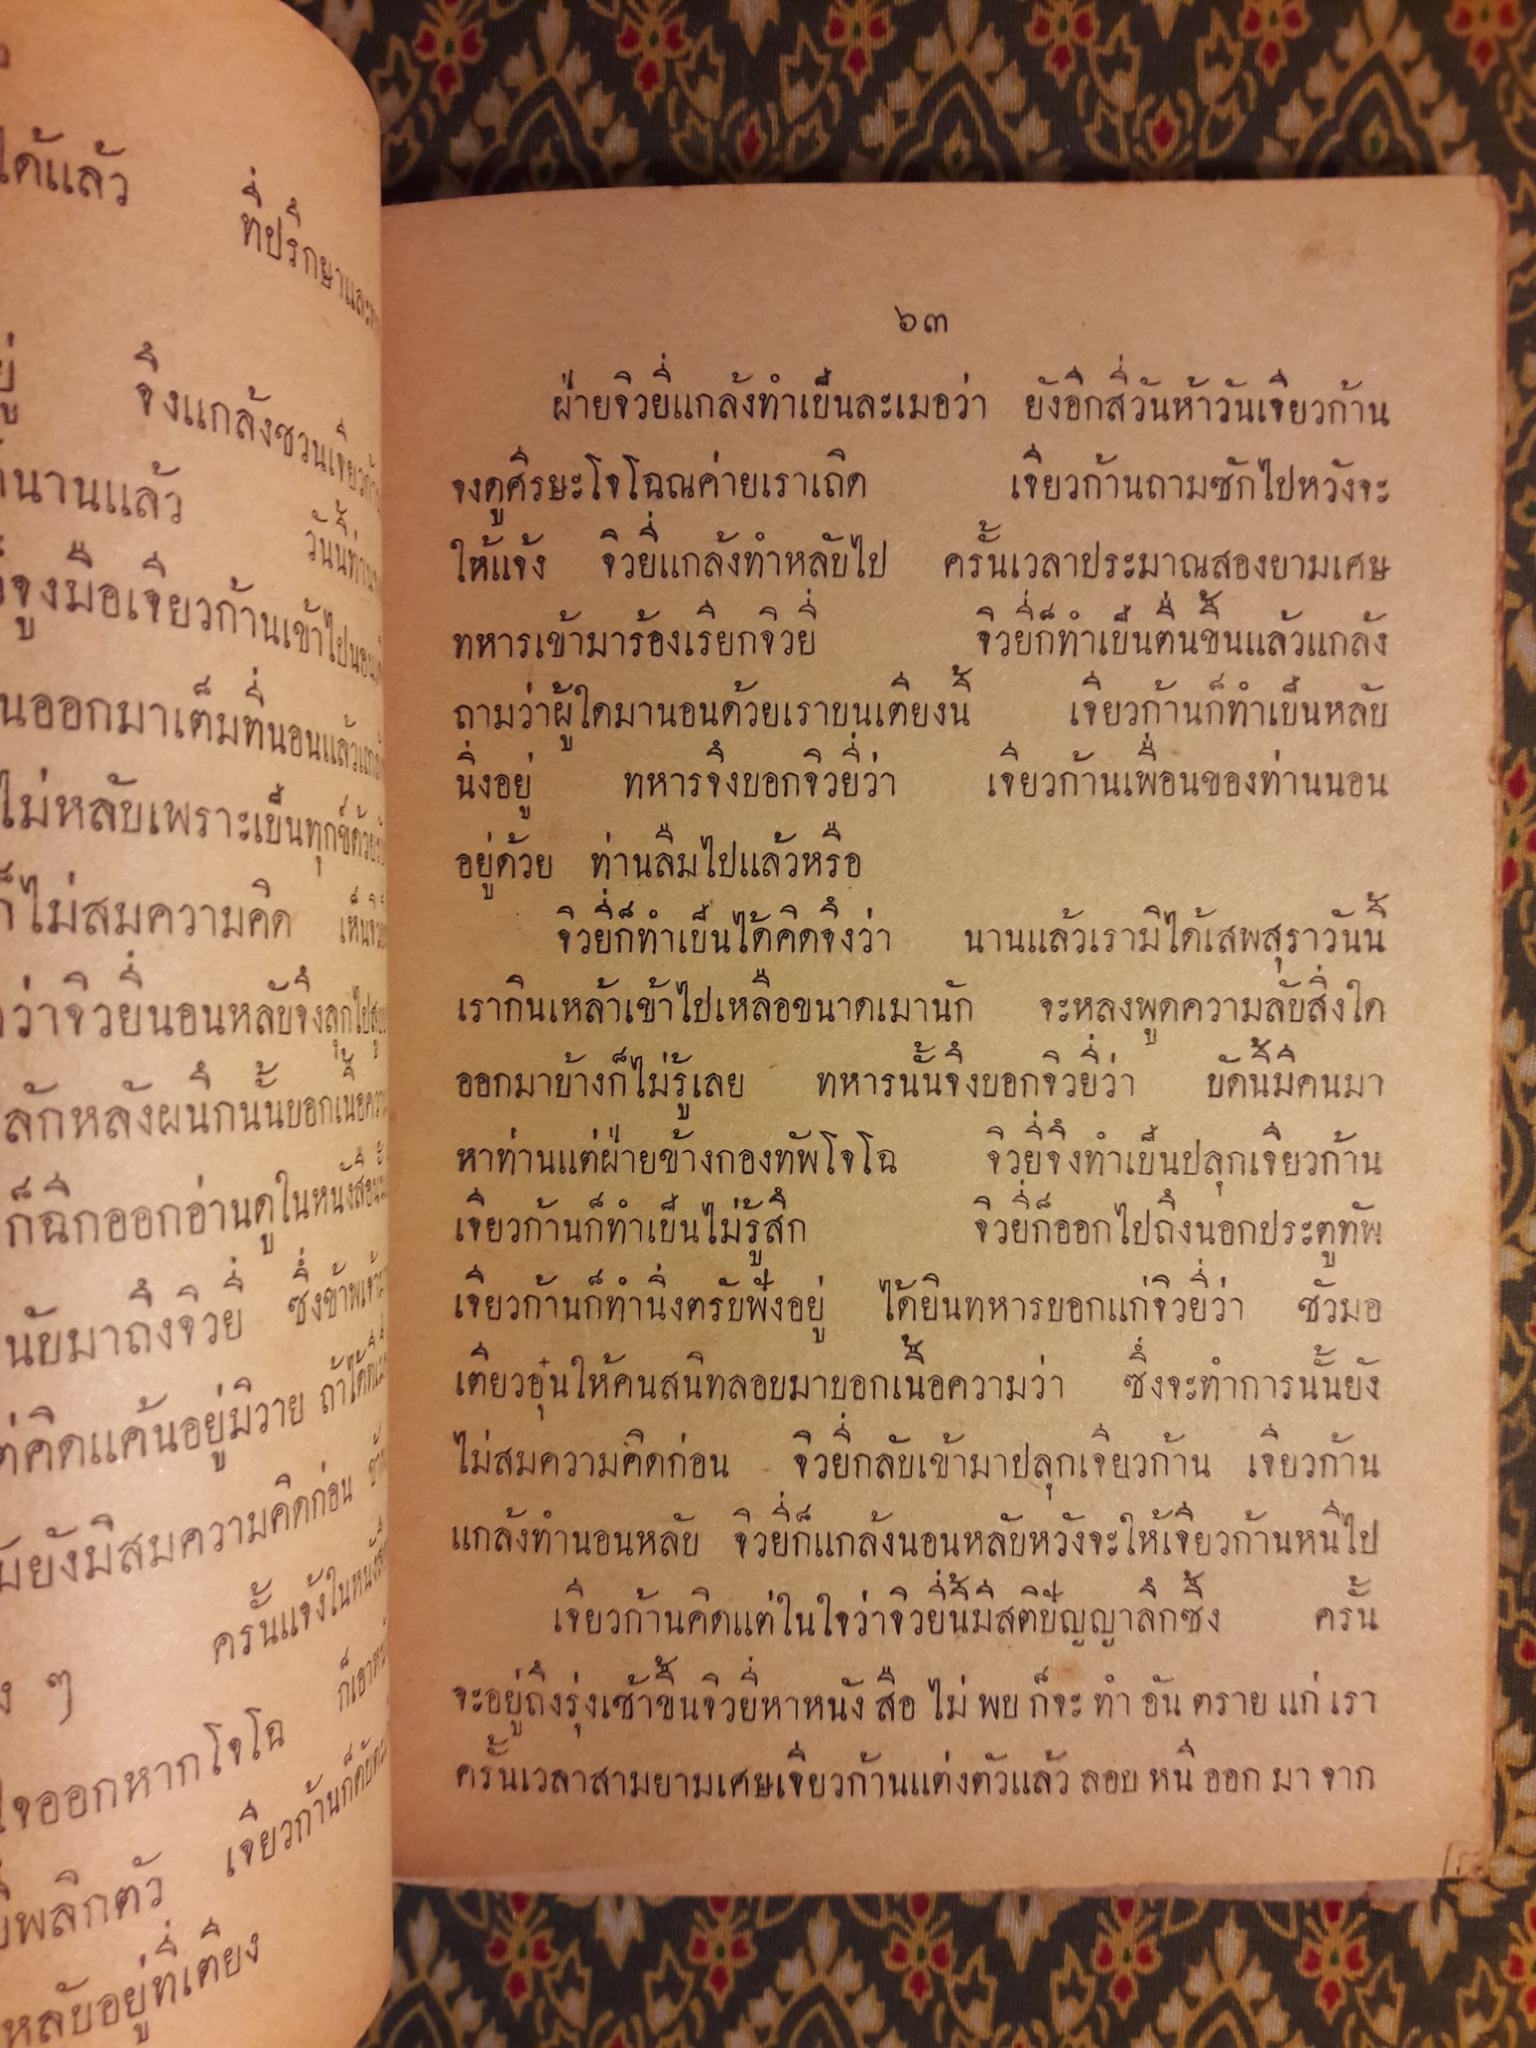 ได้แล้ว
ที่ปรึกษาและ
จึงแกล้งชวนเจียวก้
นานแล้ว
วันนี้ท่าน
จูงมือเจียวก้านเข้าไปนอน
นออกมาเต็มที่นอนแล้วแกล้
ไม่หลับเพราะเป็นทุกข์ด้วย
ก็ไม่สมความคิด เห็น
ว่าจิวยี่นอนหลับจึงลุกไป
ลักหลังผนึกนั้นบอกเนื้อความ
ก็ฉีกออกอ่านดูในหนังสือ
นัยมาถึงจิวยี่ ซึ่งข้าพเจ้า
ต่คิดแค้นอยู่มิวาย ถ้าได้ที
ยังมิสมความคิดก่อน
ครั้นแจ้งในหนังสือ
ง ๆ
ก็เอา
จออกหากโจโฉ
เจียวก้านก็ดับ
พลิกตัว
หลับอยู่ที่เตียง
๖๓
ฝ่ายจิวยี่แกล้งทำเป็นละเมอว่า ยังอีกสี่วันห้าวันเจียวก้าน
จงดูศีรษะโจโฉณค่ายเราเถิด เจียวก้านถามซักไปหวังจะ
ให้แจ้ง จิวยี่แกล้งทำหลับไป ครั้นเวลาประมาณสองยามเศษ
ทหารเข้ามาร้องเรียกจิวยี่ จิวยี่ก็ทำเป็นตื่นขึ้นแล้วแกล้ง
ถามว่าผู้ใดมานอนด้วยเราบนเตียงนี้ เจียวก้านก็ทำเป็นหลับ
นิ่งอยู่ ทหารจึงบอกจิวยี่ว่า เจียวก้านเพื่อนของท่านนอน
อยู่ด้วย ท่านลืมไปแล้วหรือ
จิวยี่ก็ทำเป็นได้คิดจึงว่า นานแล้วเรามิได้เสพสุราวันนี้
เรากินเหล้าเข้าไปเหลือขนาดเมานัก จะหลงพูดความลับสิ่งใด
ออกมาบ้างก็ไม่รู้เลย ทหารนั้นจึงบอกจิวยี่ว่า บัดนี้มีคนมา
หาท่านแต่ฝ่ายข้างกองทัพโจโฉ จิวยี่จึงทำเป็นปลุกเจียวก้าน
เจียวก้านก็ทำเป็นไม่รู้สึก จิวยี่ก็ออกไปถึงนอกประตูทัพ
เจียวก้านก็ทำนิ่งตรับฟังอยู่ ได้ยินทหารบอกแก่จิวยี่ว่า ชัวมอ
เตียวอุ๋นให้คนสนิทลอบมาบอกเนื้อความว่า ซึ่งจะทำการนั้นยัง
ไม่สมความคิดก่อน จิวยี่กลับเข้ามาปลุกเจียวก้าน เจียวก้าน
แกล้งทำนอนหลับ จิวยี่ก็แกล้งนอนหลับหวังจะให้เจียวก้านหนีไป
เจียวก้านคิดแต่ในใจว่าจิวยี่นี้มีสติปัญญาลึกซึ้ง ครั้น
จะอยู่ถึงรุ่งเช้าขึ้นจิวยี่หาหนัง สือ ไม่ พบ ก็จะ ทำ อัน ตราย แก่ เรา
ครั้นเวลาสามยามเศษเจียวก้านแต่งตัวแล้ว ลอบ หนี ออก มา จาก